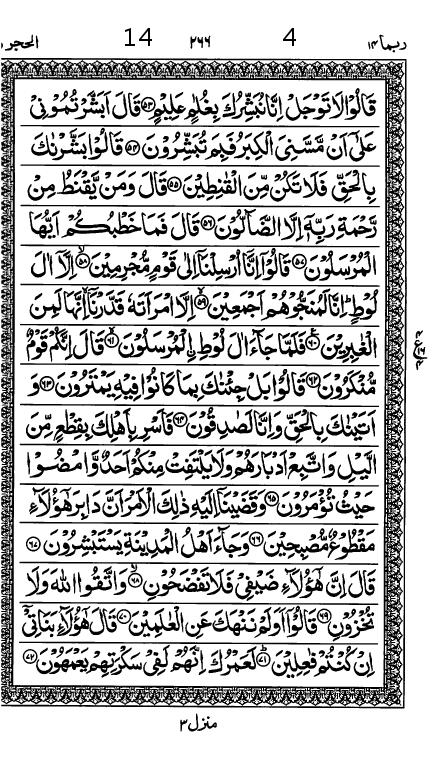 ربما ۱۴ 4 ۲۶۶ 14 الحجر
قَالُوْا لَا تَوْجَلْ اِنَّا نُبَشِّرُكَ بِغُلٰمٍ عَلِيْمٍ ۵۳ قَالَ اَبَشَّرْتُمُوْنِيْ
عَلٰٓى اَنْ مَّسَّنِيَ الْكِبَرُ فَبِمَ تُبَشِّرُوْنَ ۵۴ قَالُوْا بَشَّرْنٰكَ
بِالْحَقِّ فَلَا تَكُنْ مِّنَ الْقٰنِطِيْنَ ۵۵ قَالَ وَمَنْ يَّقْنَطُ مِنْ
رَّحْمَةِ رَبِّهٖٓ اِلَّا الضَّآلُّوْنَ ۵۶ قَالَ فَمَا خَطْبُكُمْ اَيُّهَا
الْمُرْسَلُوْنَ ۵۷ قَالُوْٓا اِنَّآ اُرْسِلْنَآ اِلٰى قَوْمٍ مُّجْرِمِيْنَ ۵۸ اِلَّآ اٰلَ
لُوْطٍ ؕ اِنَّا لَمُنَجُّوْهُمْ اَجْمَعِيْنَ ۵۹ اِلَّا امْرَاَتَهٗ قَدَّرْنَآ اِنَّهَا لَمِنَ
الْغٰبِرِيْنَ ۶۰ فَلَمَّا جَآءَ اٰلَ لُوْطِ ِۨالْمُرْسَلُوْنَ ۶۱ قَالَ اِنَّكُمْ قَوْمٌ
مُّنْكَرُوْنَ ۶۲ قَالُوْا بَلْ جِئْنٰكَ بِمَا كَانُوْا فِيْهِ يَمْتَرُوْنَ ۶۳ وَ
اَتَيْنٰكَ بِالْحَقِّ وَاِنَّا لَصٰدِقُوْنَ ۶۴ فَاَسْرِ بِاَهْلِكَ بِقِطْعٍ مِّنَ
الَّيْلِ وَاتَّبِعْ اَدْبَارَهُمْ وَلَا يَلْتَفِتْ مِنْكُمْ اَحَدٌ وَّامْضُوْا
حَيْثُ تُؤْمَرُوْنَ ۶۵ وَقَضَيْنَآ اِلَيْهِ ذٰلِكَ الْاَمْرَ اَنَّ دَابِرَ هٰٓؤُلَآءِ
مَقْطُوْعٌ مُّصْبِحِيْنَ ۶۶ وَجَآءَ اَهْلُ الْمَدِيْنَةِ يَسْتَبْشِرُوْنَ ۶۷
قَالَ اِنَّ هٰٓؤُلَآءِ ضَيْفِيْ فَلَا تَفْضَحُوْنِ ۶۸ وَاتَّقُوا اللّٰهَ وَلَا
تُخْزُوْنِ ۶۹ قَالُوْٓا اَوَلَمْ نَنْهَكَ عَنِ الْعٰلَمِيْنَ ۷۰ قَالَ هٰٓؤُلَآءِ بَنٰتِيْٓ
اِنْ كُنْتُمْ فٰعِلِيْنَ ۷۱ لَعَمْرُكَ اِنَّهُمْ لَفِيْ سَكْرَتِهِمْ يَعْمَهُوْنَ ۷۲
منزل ۳